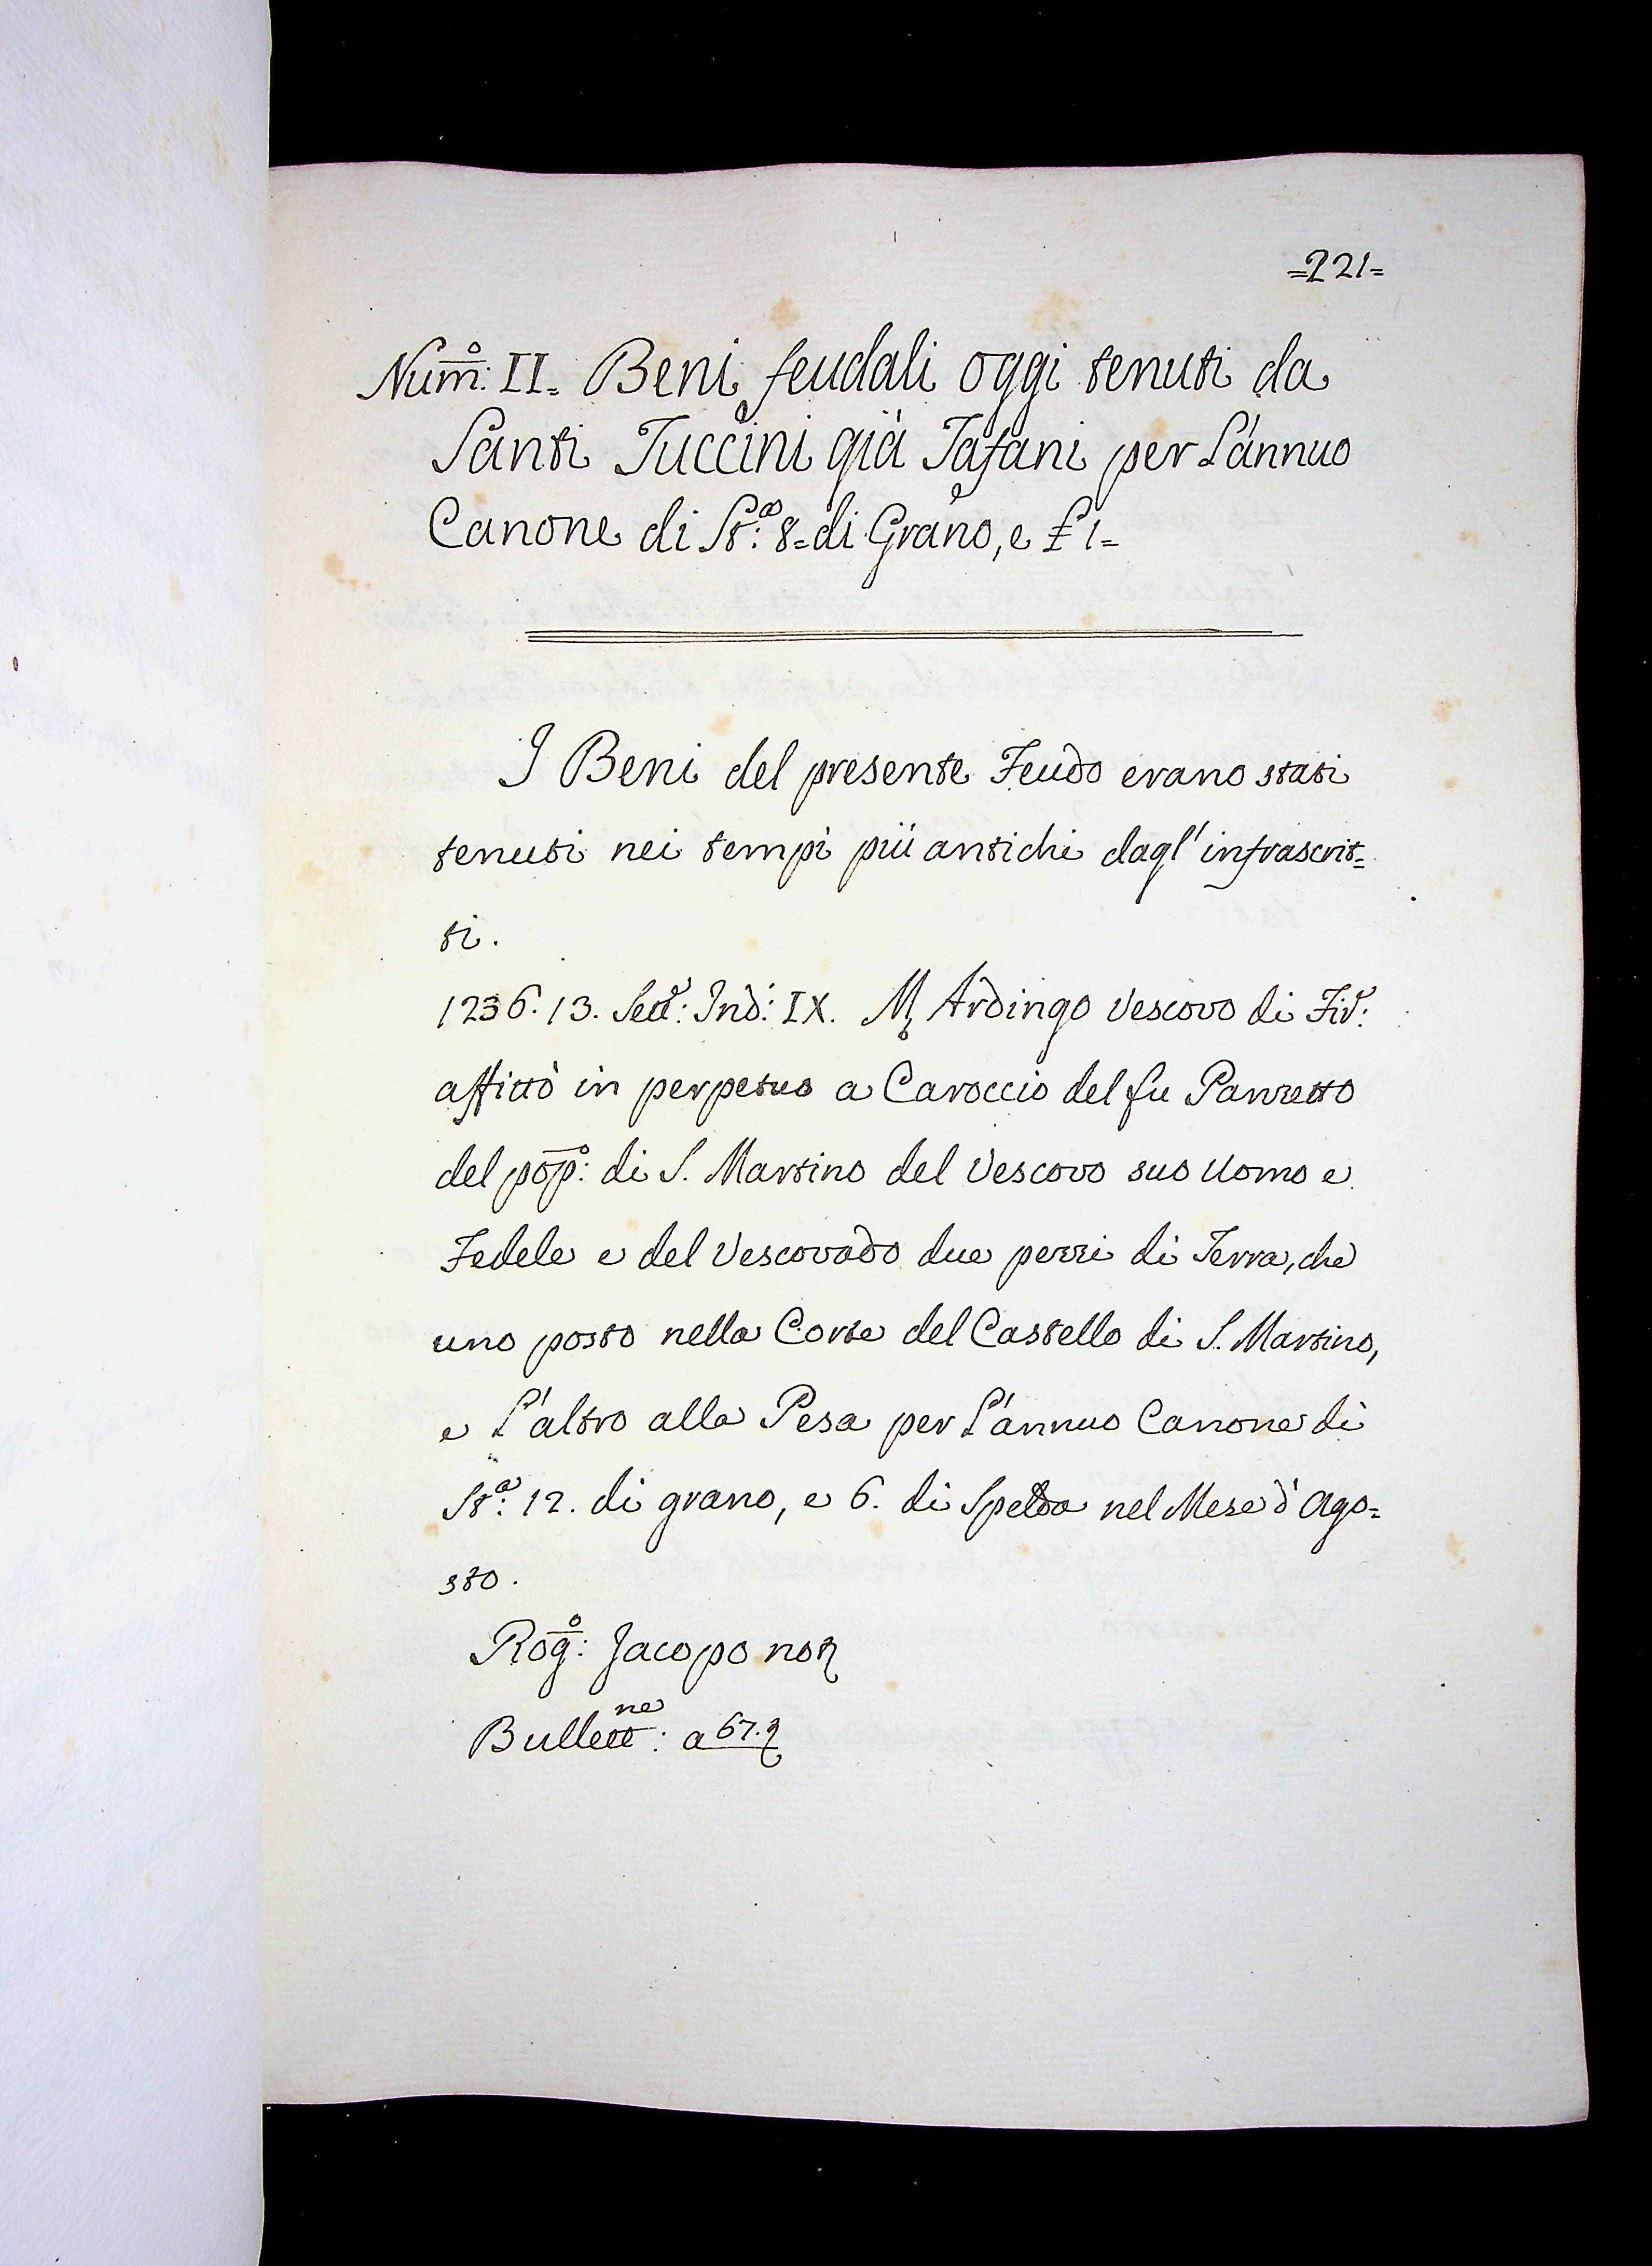 =221=
Num:º II. Beni feudali oggi tenuti da
Santi Tuccini già Tafani per L'annuo
Canone di St:ª 8= di Grano, e £ 1=
I Beni del presente Feudo erano stati
tenuti nei tempi più antichi dagl'infrascrit=
ti.
1236. 13. Sett:e Ind: IX. M. Ardingo Vescovo di Fir:e
affittò in perpetuo a Caroccio del fu Panzetto
del pop:º di S. Martino del Vescovo suo Uomo e
Fedele e del Vescovado due pezzi di Terra, che
uno posto nella Corte del Castello di S. Martino,
e L'altro alla Pesa per L'annuo Canone di
St:ª 12. di grano, e 6. di Spelda nel Mese d'Ago=
sto.
Rog:º Jacopo not
Bullett:ne a 67.